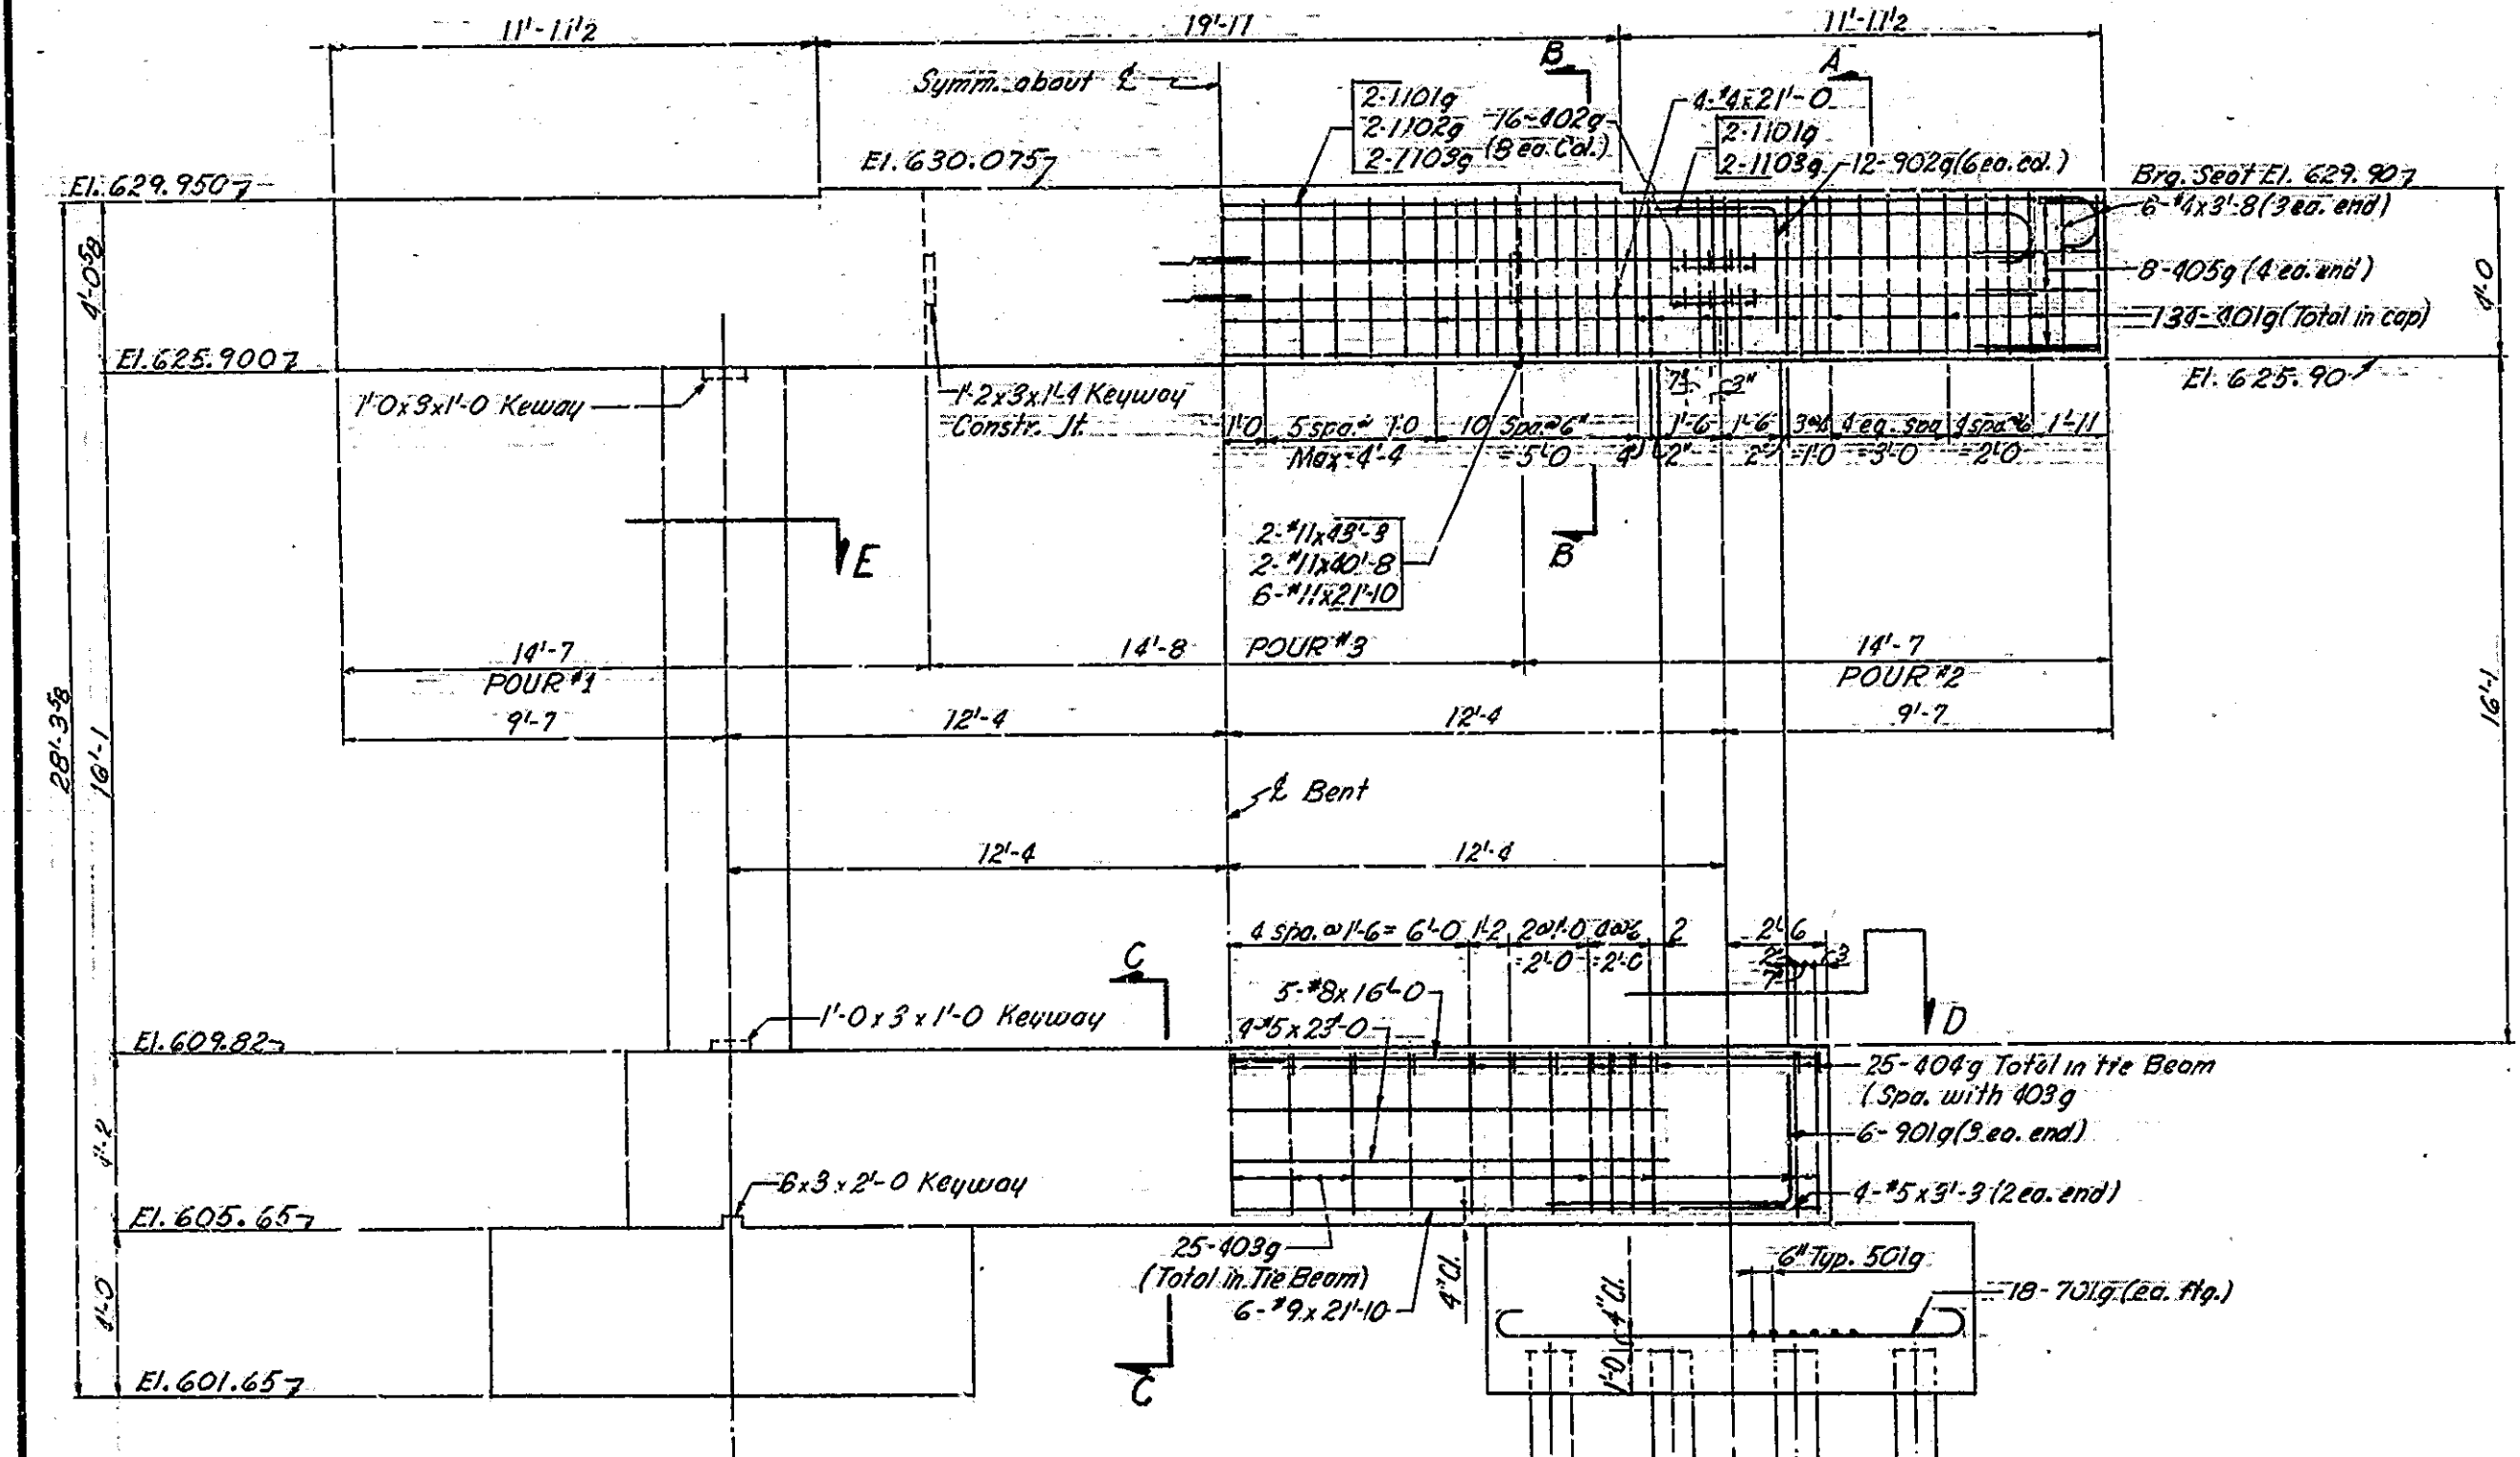 11'-11½
19'-11
11'-11½
Symm. about ℄
B
A
2-1101g
2-1102g
2-1103g
16-402g
(8 ea. Col.)
4-#4x21'-0
2-1101g
2-1103g
12-902g(6 ea. col.)
El. 629.950
El. 630.075
Brg. Seat El. 629.90
6-#4x3'-8(3 ea. end)
8-405g (4 ea. end)
134-401g(Total in cap)
4'-0⅝
4'-0
El. 625.900
El. 625.90
1'-0x3x1'-0 Keway
1'-2x3x1'-4 Keyway
Constr. Jt.
7"
3"
1'-0
5 spa. @ 1'-0
Max=4'-4
10 Spa. @ 6"
=5'-0
4"
2"
1'-6
1'-6
2"
3@4
=1'-0
4 eq. spa
=3'-0
4 spa @ 6
=2'-0
1'-11
E
B
2-#11x43'-3
2-#11x40'-8
6-#11x21'-10
14'-7
POUR #1
14'-8
POUR #3
14'-7
POUR #2
9'-7
12'-4
12'-4
9'-7
28'-3⅝
16'-1
16'-1
℄ Bent
12'-4
12'-4
4 spa. @ 1'-6 = 6'-0
1'-2
2@1'-0
=2'-0
4@6
=2'-0
2
2'-6
2
7"
3
C
D
5-#8x16'-0
4-#5x23'-0
1'-0 x 3 x 1'-0 Keyway
El. 609.82
25-404g Total in tie Beam
(Spa. with 403g
6-901g(3 ea. end)
4'-2
6x3x2'-0 Keyway
4-#5x3'-3 (2 ea. end)
El. 605.65
25-403g
(Total in Tie Beam)
6-#9x21'-10
4"Cl.
4"Cl.
6" Typ. 501g
18-701g (ea. ftg.)
4'-0
1'-0
El. 601.65
C